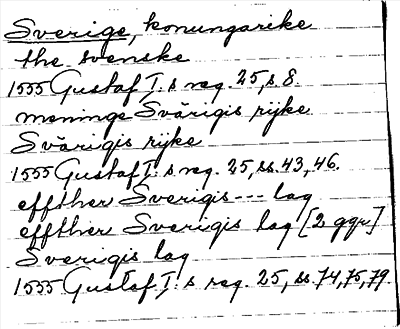 Sverige, konungarike
the svenske
1555 Gustaf I:s reg. 25, s. 8.
meninge Svärigis rijke
Svärigis rijke
1555 Gustaf I:s reg. 25, ss. 43, 46.
effther Sverigis --- lag
effther Sverigis lag [2 ggr]
Sverigis lag
1555 Gustaf I:s reg. 25, ss. 74, 75, 79.